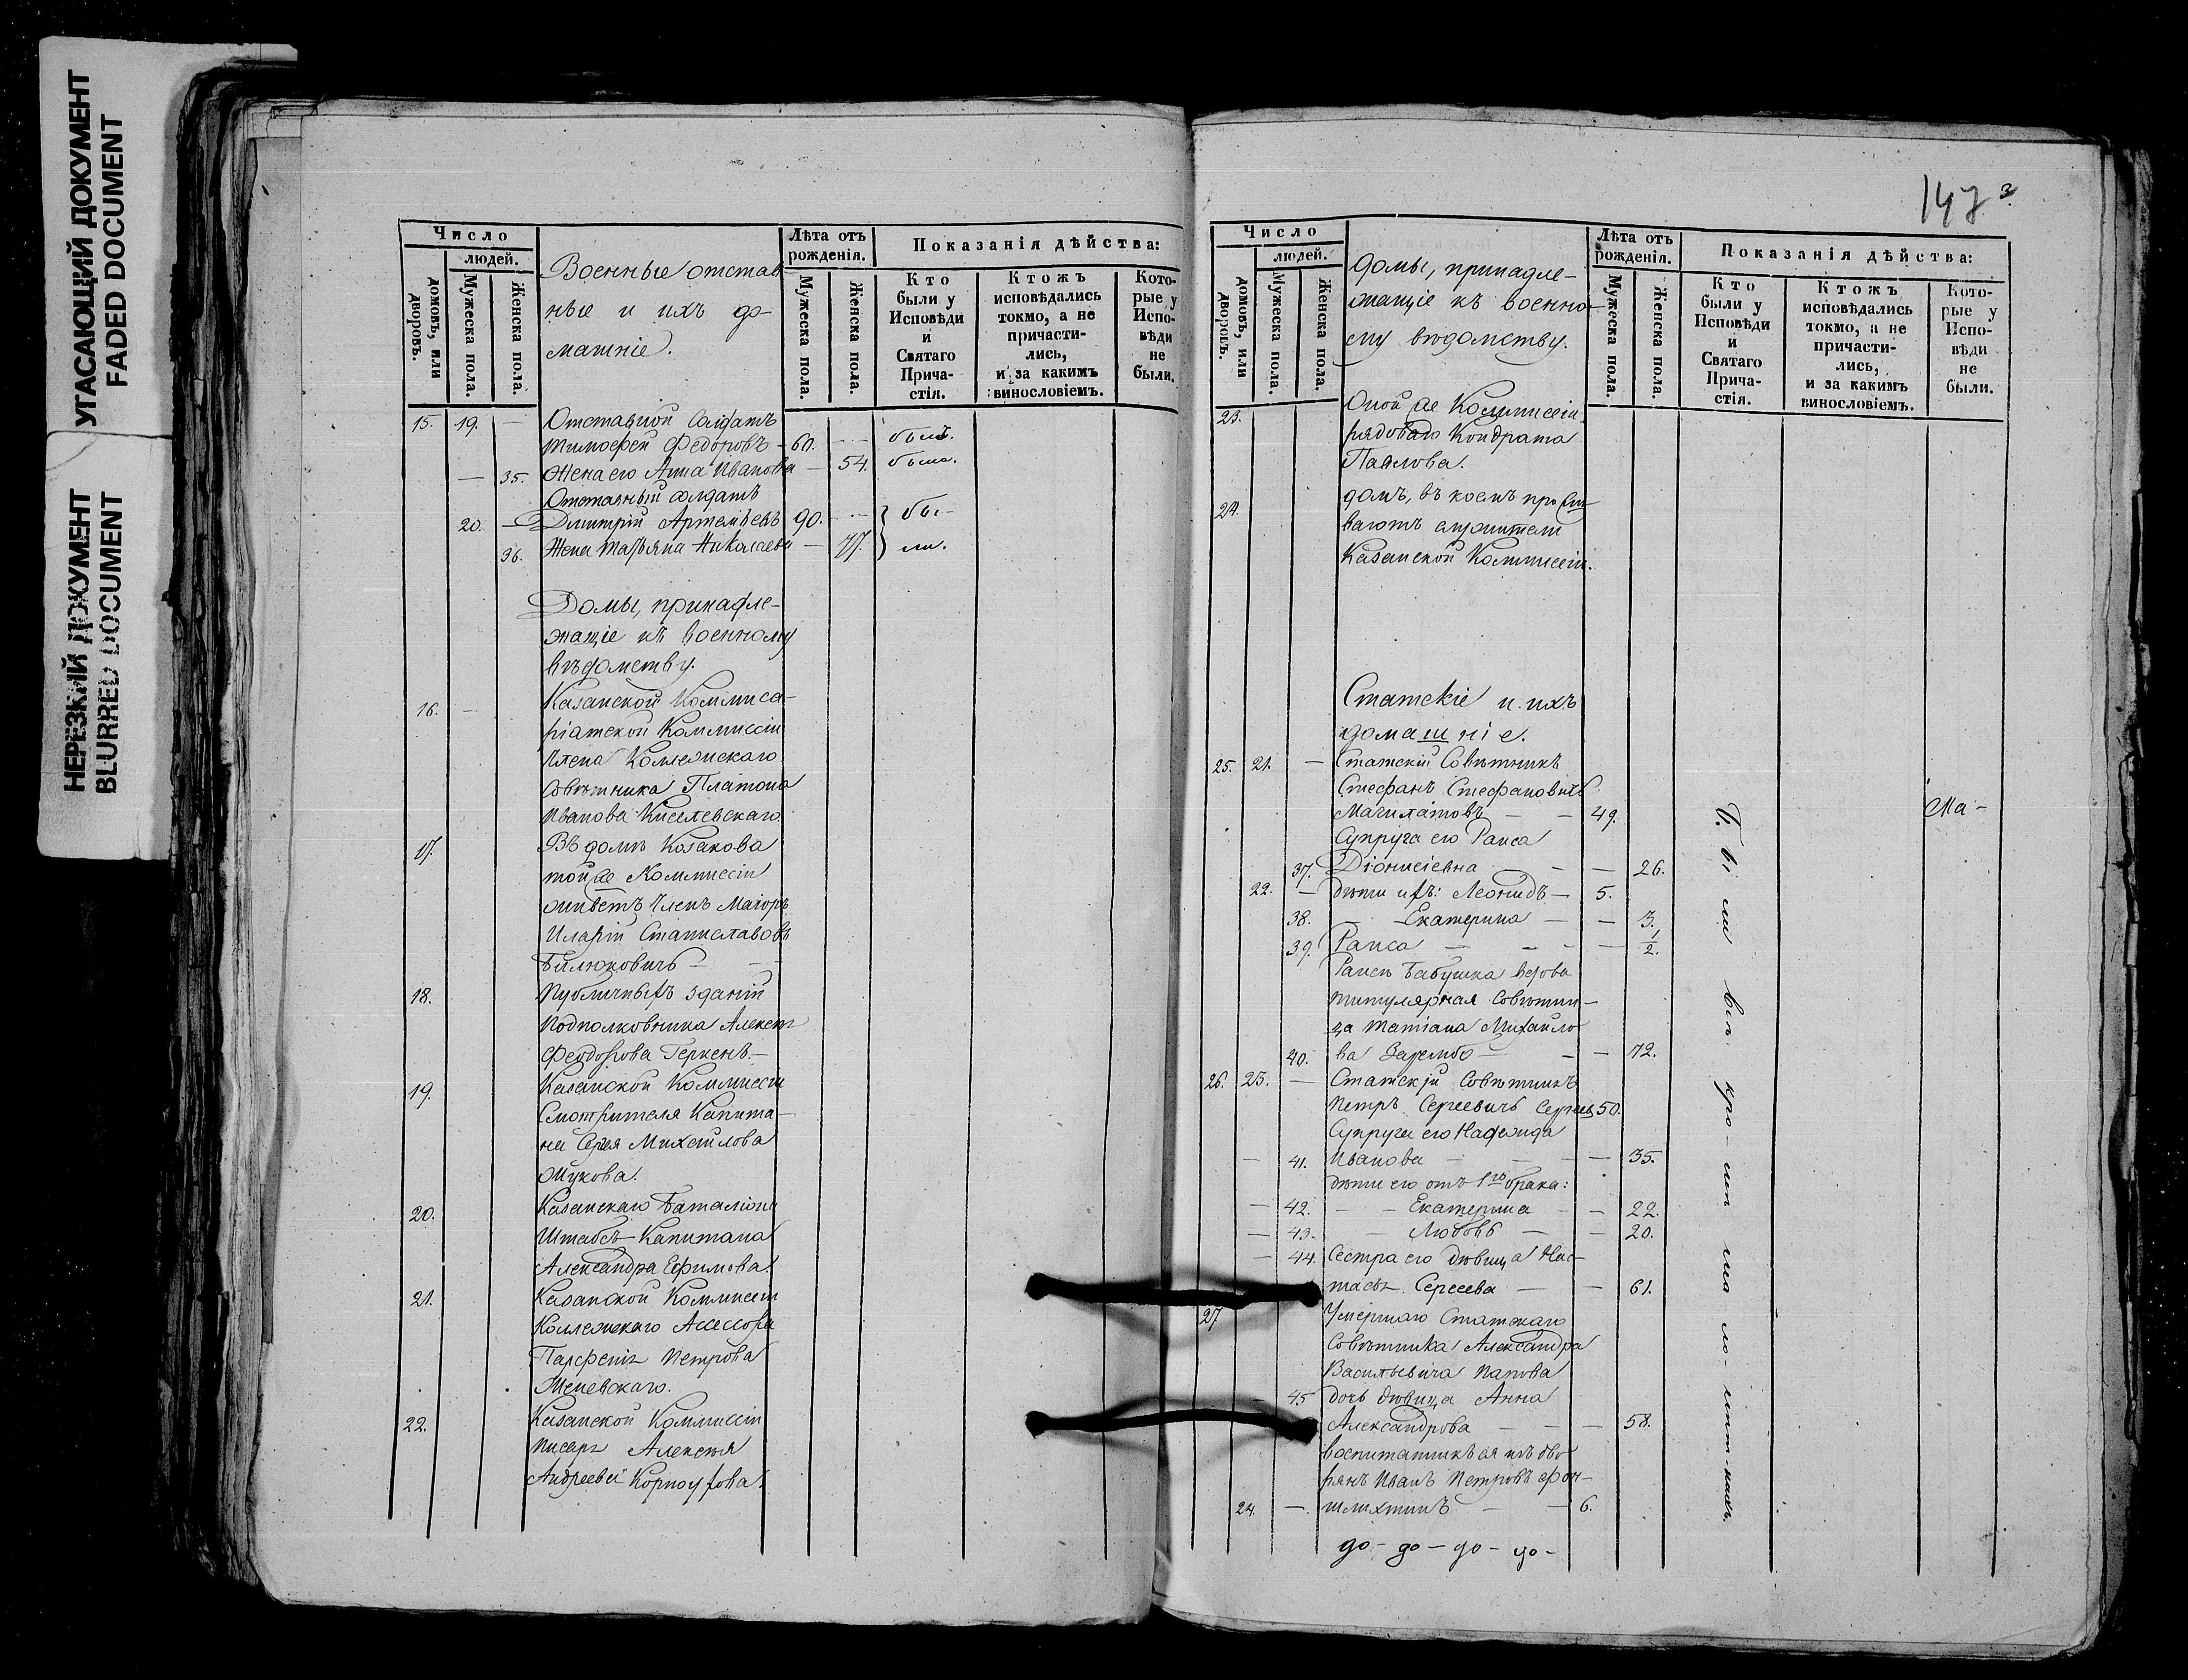 УГАСАЮЩИЙ ДОКУМЕНТ
FADED DOCUMENT
НЕРЕЗКИЙ ДОКУМЕНТ
BLURRED DOCUMENT
Число
людей.
домовъ, или дворовъ.
Мужеска пола.
Женска пола.
Военные отстав
ные и ихъ до-
машніе.
Лѣта отъ рожденія.
Мужеска пола.
Женска пола.
Показанія дѣйства:
Кто были у Исповѣди и Святаго Прича-стія.
Ктожъ исповѣдались токмо, а не причасти-лись, и за какимъ винословіемъ.
Кото-рые у Испо-вѣди не были.
15. 19. — Отставной Солдатъ
Тимофей Федоровъ - 60. — былъ.
— 35. Жена его Анна Иванова — 54. была.
Отставный солдатъ
20. — Дмитрій Артемьевъ 90. — бы-
36. Жена Татьяна Николаева — 77. ли.
Домы, принадле-
жащіе къ военному
вѣдомству.
16. — Казанской Коммиса-
ріатской Коммиссіи
Члена Коллежскаго
Совѣтника Платона
Иванова Киселевскаго.
17. Въ домѣ Козакова
той же Коммиссіи
живетъ Членъ Маіоръ
Иларій Станиславовъ
Билюковичъ — —
18. Публичныхъ зданій
Подполковника Алексан
Феодорова Геркенъ. —
19. Казанской Коммиссіи
Смотрителя Капита-
на Сергея Михайлова
Жукова.
20. Казанскаго Баталіона
Штабсъ-Капитана
Александра Ефимова.
21. Казанской Коммиссіи
Коллежскаго Ассесора
Парфенія Петрова
22. Казанской Коммиссіи
Писаря Алексѣя
Андреева Корноухова.
147
Число
людей.
домовъ, или дворовъ.
Мужеска пола.
Женска пола.
домы, принадле-
жащіе къ военно-
му вѣдомству.
Лѣта отъ рожденія.
Мужеска пола.
Женска пола.
Показанія дѣйства:
Кто были у Исповѣди и Святаго Прича-стія.
Ктожъ исповѣдались токмо, а не причасти-лись, и за какимъ винословіемъ.
Кото-рые у Испо-вѣди не были.
23. Оной же Коммиссіи
рядоваго Кондрата
Павлова.
24. домъ, въ коемъ прожи
ваютъ служители
Казанской Коммиссіи.
Статскіе и ихъ
домашніе.
25. 21. — Статскій Совѣтникъ
Стефанъ Стефановичъ
— — 49.
Супруга его Раиса
37. Діонисіевна — — 26.
22. — дѣти ихъ: Леонидъ — 5.
38. — Екатерина — — 3.
39. Раиса — — — 1/2.
Раисы бабушка вдова
титулярная Совѣтни-
ца Татіана Михайло
40. ва Зарембо — — — 72.
26. 23. — Статскій Совѣтникъ
Петръ Сергеевичъ Сергеев 50.
Супруга его Надежда
— 41. Иванова — — — 35.
дѣти его отъ 1го брака:
— 42. — — Екатерина — — 22.
— 43. — Любовь — — 20.
— 44. Сестра его дѣвица Нас-
тасья Сергеева — — 61.
27 Умершаго Статскаго
Совѣтника Александра
Васильевича Папова
— 45 дочь дѣвица Анна
Александрова — — — 58.
воспитанникъ ея изъ дво
рянъ Иванъ Петровъ фон-
24. — — — 6.
до - до - до - до -
Бы ли всѣ кро - мѣ ма ло - лѣт-нихъ.
Ма -